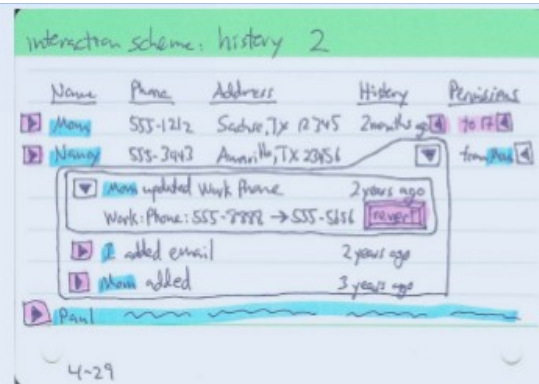 interaction scheme: history 2
Name Phone Address History Permissions
Mom 555-1212 TX 12345 2 months ago to 17
Nancy 555-3443 Amarillo, TX 23456 from
Mom updated Work Phone 2 years ago
Work: Phone: 555-8888 → 555-5656 revert
I added email 2 years ago
Mom added 3 years ago
Paul
4-29